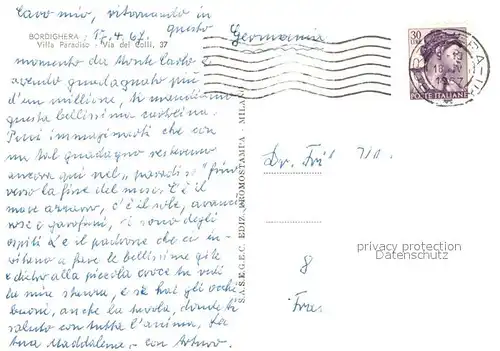 Caro mio, ritornando in
questo
BORDIGHERA : 17.4.67.
Villa Paradiso - Via dei Colli, 37
momento da Monte Carlo e
avendo guadagnato più
d'un milione, ti mandiamo
questa bellissima cartolina.
Puoi immaginarti che con
un tal guadagno resteremo
ancora qui nel "paradiso" fino
verso la fine del mese. C'è il
mare azzurro, c'è il sole, aranci
rose e garofani, ci sono degli
ospiti e il padrone che ci in-
vitano a fare le bellissime gite
e dietro alla piccola croce tu vedi
la mia stanza, e se hai gli occhi
buoni, anche la tavola, donde ti
saluto con tutta l'anima. La
tua Maddalena, - con Arturo.
S.A.S.E.G.E.C. EDIZ. PROMOSTAMPA - MILANO
Germania
30
LIRE
POSTE ITALIANE
18
Dr.
8
privacy protection
Datenschutz